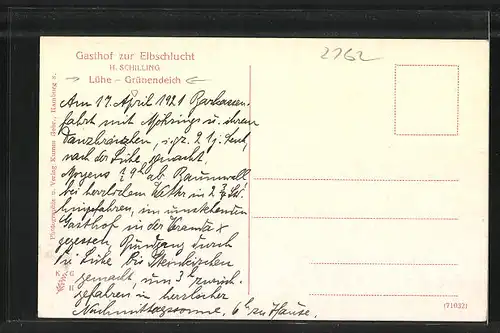 Gasthof zur Elbschlucht
H. SCHILLING
Lühe – Grünendeich
2762
Am 17. April 1921 Barkassen-
fahrt mit Möhrings u. ihrem
Tanzkränzchen, i. gz. 21 j. Leut,
nach der Lühe, gemacht.
Morgens 7 9/2 ab Baumwall
bei herrlichem Wettr in 2 ¾ St.
hingefahren, im umstehenden
Gasthof in der Veranda x
gegessen, Rundgang durch
die Lühe bis Steinkirchen
gemacht, um 3 h zurück-
gefahren in herrlicher
Nachmittagssonne. 6 h zu Hause.
Photographie u. Verlag Kumm Gebr., Hamburg
K G H
(71032)